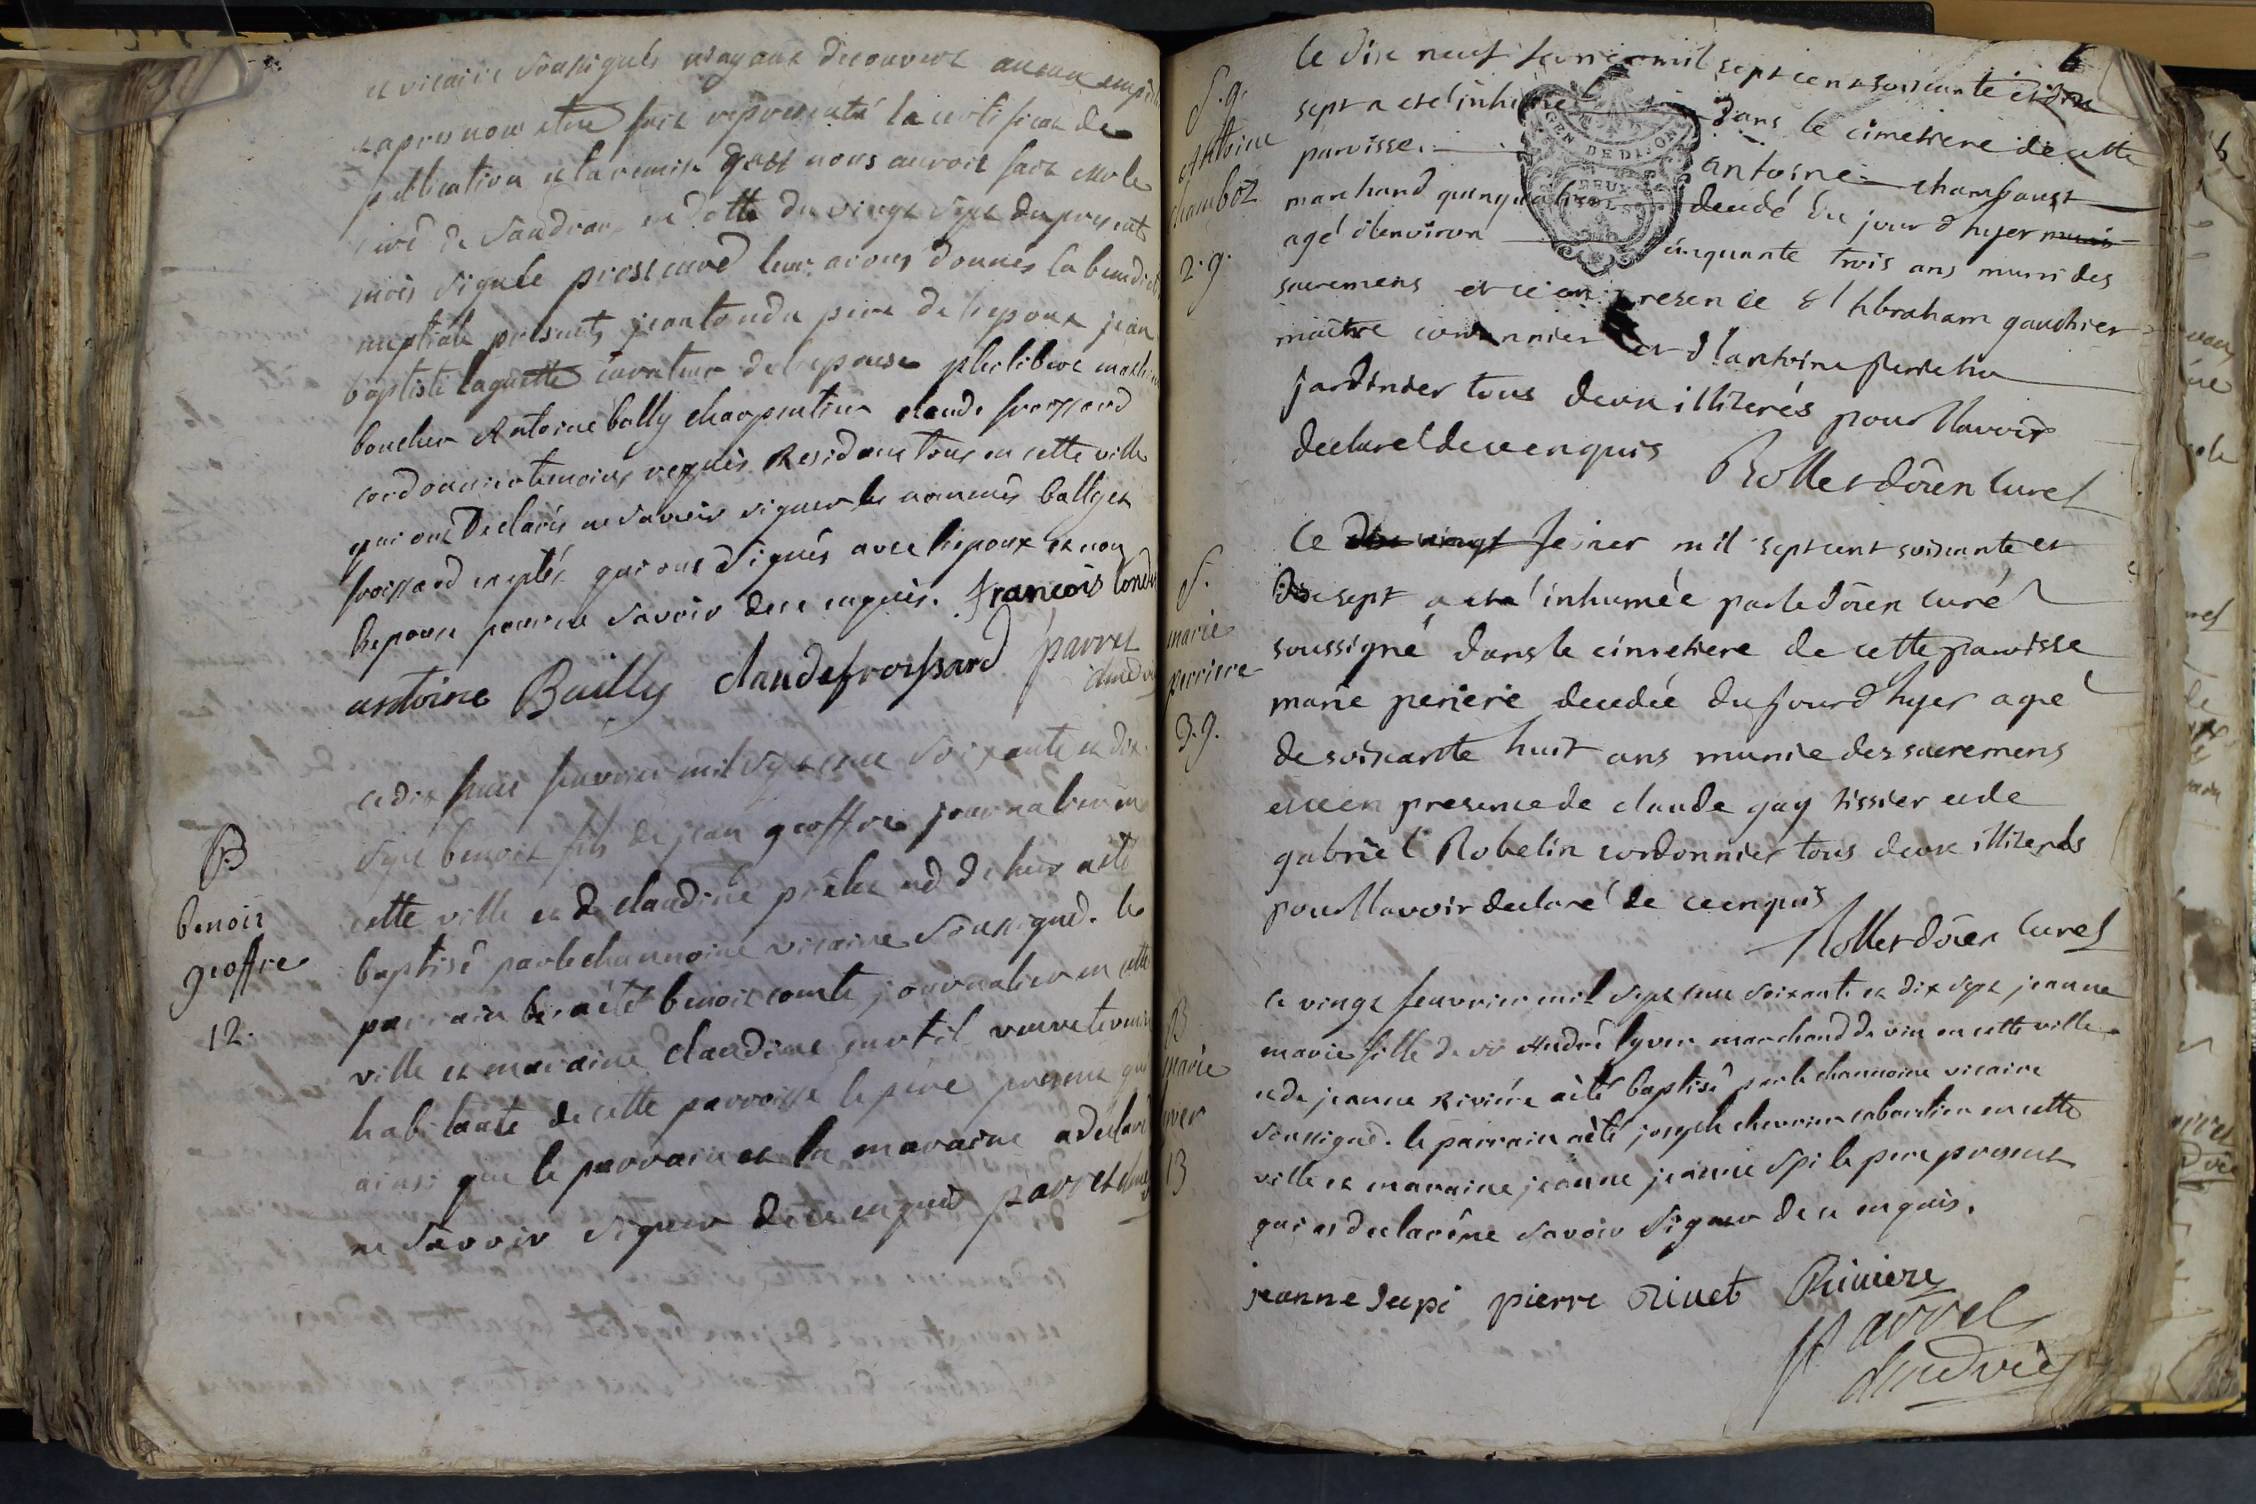 et vicaire soussignés n'ayant decouvert aucun
et apres nous etre fait representé la certificat de
publication et la remise qu'en nous auroit fait mr le
curé de Saudran en datte du vingt sept du present
mois signé le prost curé leur avons donnés la
nuptiale presents jean tondu pere de l'epoux jean
baptiste laguette curateur de l'epouse
boucher Antoine bally charpentier claude froissard
cordonnier temoins requis Residant tous en cette ville
qui ont Declarés ne savoir signer les nommés bally et
froissard exeptés qui ont signés avec l'epoux et non
l'epouse pour ne savoir de ce enquis. françois tondu
antoine Bailly claude froissard parret
B
benoit
geoffre
12.
ce dix huit fevrier mil sept cent soixante et dix
sept benoit fils de jean geoffre journalier en
cette ville et de claudine
baptisé par le channoine vicaire soussigné. le
parrain a été benoit comte journalier en cette
ville et maraine claudine
habitante de cette parroisse le père present qui
ainsi que le parrain et la maraine a declaré
ne savoir signer de ce enquis parret
6
S. g.
Antoine
chambot
2. g.
Le dix neuf fevrier mil sept cent soixante et dix
sept a eté inhumé dans le cimetiere de cette
paroisse. antoine
marchand quinqualier decedé du jour d'hyer
agé d'environ cinquante trois ans muni des
sacremens et ce en presence d'Abraham gauthier
maître cordonnier et d'antoine
jardinier tous deux illiterés pour l'avoir
declaré de ce enquis
Rollet döien curé
GEN DE DIJON
DEUX
S.
marie
perriere
3. g.
Le vingt fevrier mil sept cent soixante et
dix sept a eté inhumée par le döien curé
soussigné dans le cimetiere de cette paroisse
marie periere decedée du jour d'hyer agé
de soixante huit ans munie des sacremens
et ce en presence de claude gay tissier et de
gabriel Robelin cordonnier tous deux illiterés
pour l'avoir declaré de ce enquis
Rollet döien curé
B
marie
yver
13
ce vingt feuvrier mil sept cent soixante et dix sept jeanne
marie fille de sr André lyver marchand de vin en cette ville
et de jeanne Riviére a été baptisé par le channoine vicaire
soussigné. le parrain a été joseph chevrier cabartier en cette
ville et maraine jeanne jeanne Spi le pere present
qui as declaré ne savoir signer de ce enquis.
jeanne Sepi pierre Rivet Riviere
parret